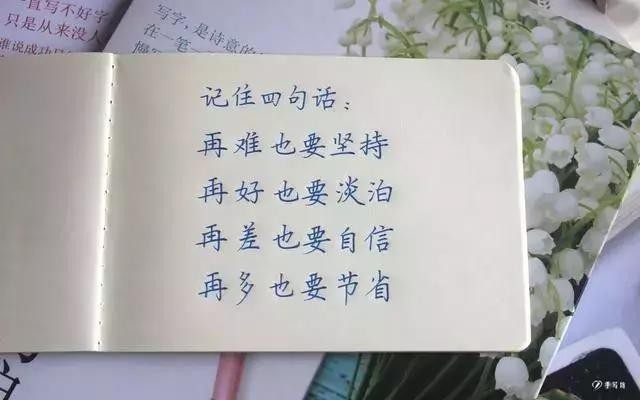 直写不好字
只是从来没人
谁说成功只
写字,是诗意的
在一笔一
记住四句话:
再难也要坚持
再好也要淡泊
再差也要自信
再多也要节省